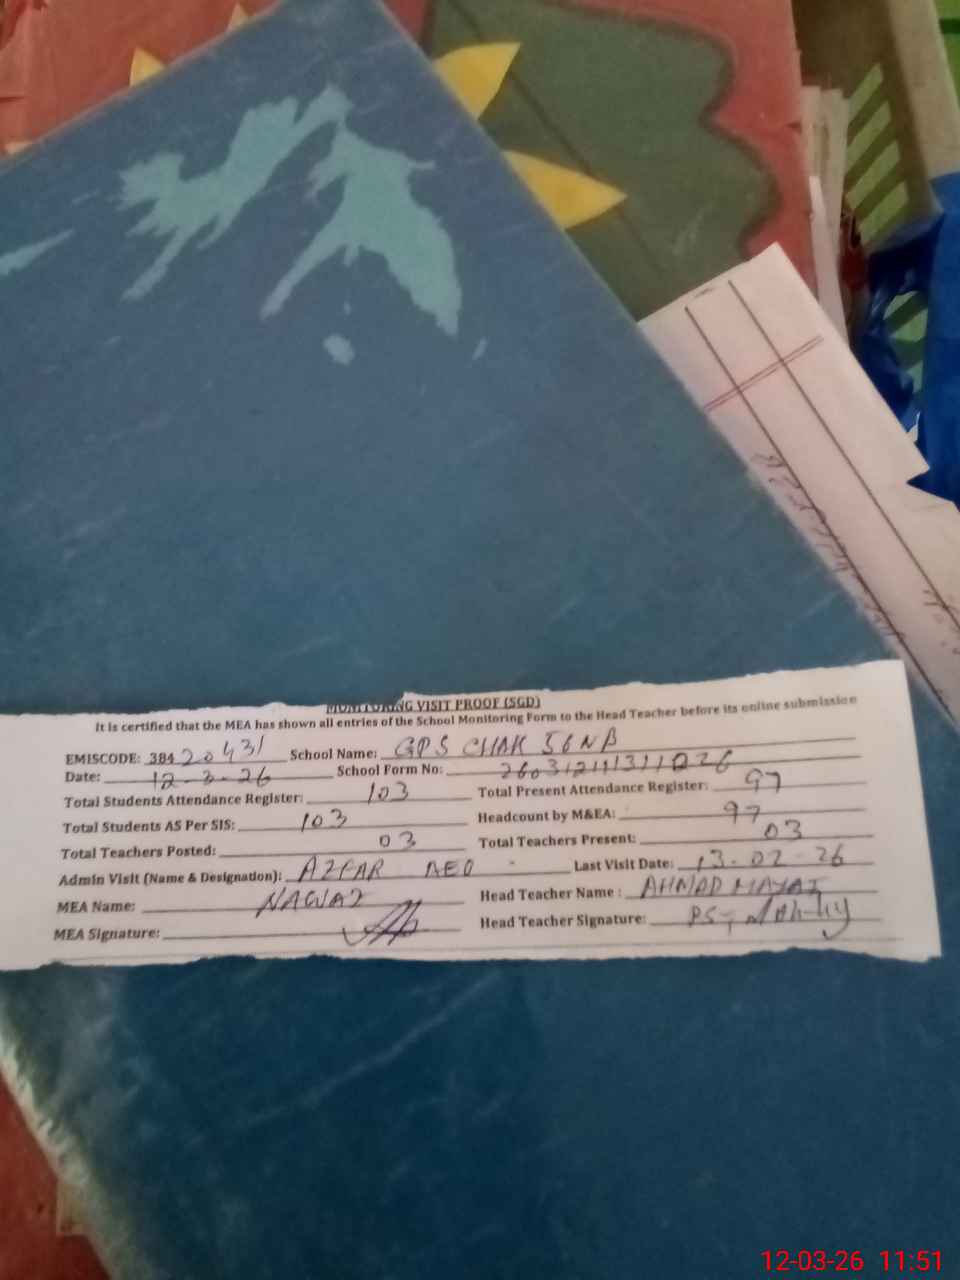 MONITORING VISIT PROOF (SGD)
It is certified that the MEA has shown all entries of the School Monitoring Form to the Head Teacher before its online submission
EMISCODE: 38420431 School Name: GPS CHAK 56 NB
Date: 12-3-26 School Form No:
Total Students Attendance Register: 103 Total Present Attendance Register: 97
Total Students AS Per SIS: 103 Headcount by M&EA: 97
Total Teachers Posted: 03 Total Teachers Present: 03
Admin Visit (Name & Designation): AZFAR AEO Last Visit Date: 13-02-26
MEA Name: NAWAZ Head Teacher Name : AHMAD
MEA Signature: Head Teacher Signature:
12-03-26 11:51